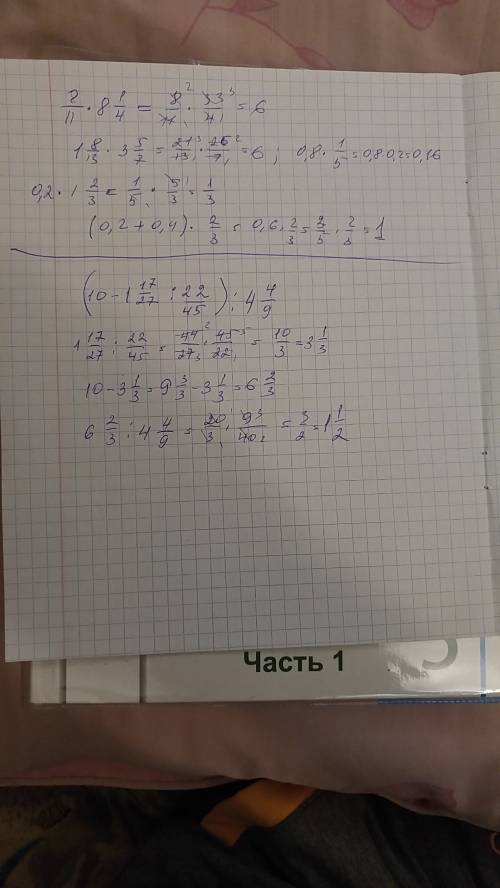 8/11 · 8 1/4 = 8/11 · 33/4 = 6
1 8/13 · 3 5/7 = 21/13 · 26/7 = 6 ; 0,8 · 1/5 = 0,8·0,2=0,16
0,2 · 1 2/3 = 1/5 · 5/3 = 1/3
(0,2 + 0,4) · 2/3 = 0,6 ·
(10 - 1 17/27 : 22/45) : 4 4/9
1 17/27 : 22/45 = 44/27 · 45/22 = 10/3 = 3 1/3
10 - 3 1/3 = 9 3/3 - 3 1/3 = 6 2/3
6 2/3 : 4 4/9 = 20/3 · 9/40 = 3/2 = 1 1/2
Часть 1
5